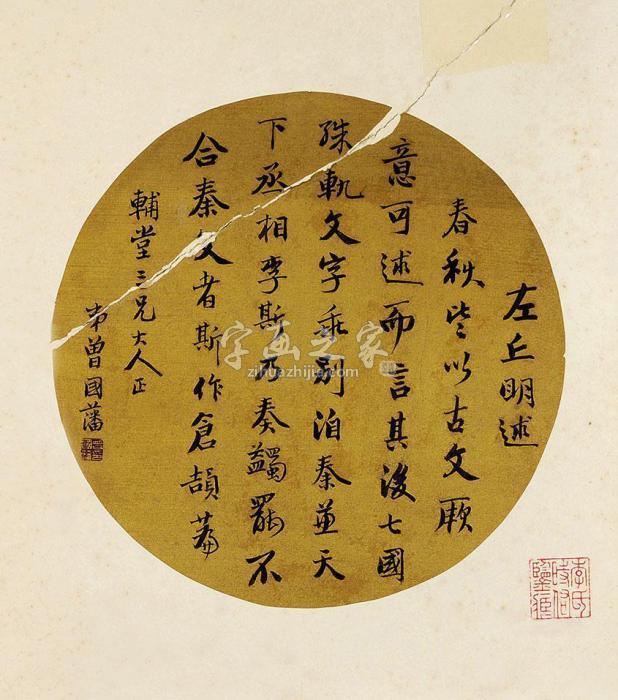 左丘明述
春秋皆以古文厥
意可述而言其後七國
殊軌文字乖別洎秦並天
下丞相李斯乃奏蠲罷不
合秦文者斯作倉頡篇
輔堂三兄大人正
弟曾國藩
李氏
時佰
鑒
字画之家
zihuazhijia.com